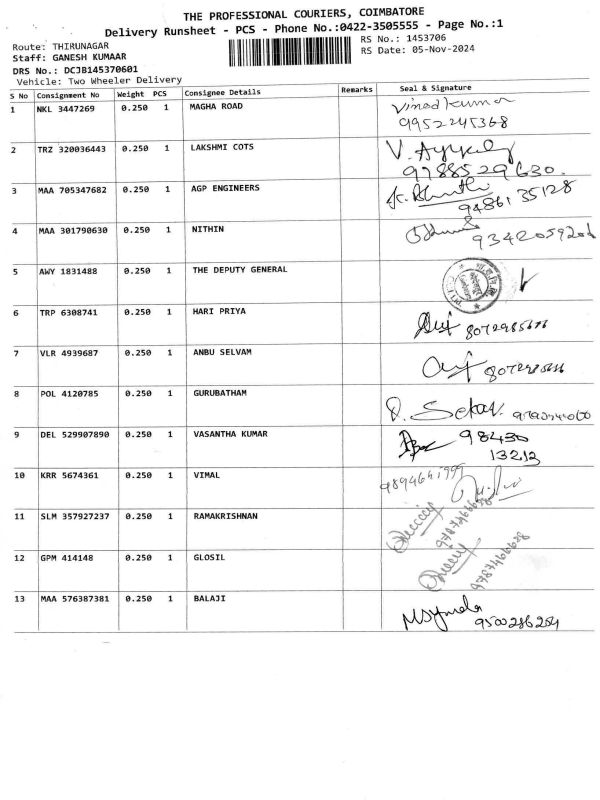 THE PROFESSIONAL COURIERS, COIMBATORE
Delivery Runsheet - PCS - Phone No.:0422-3505555 - Page No.:1
Route: THIRUNAGAR
RS No.: 1453706
Staff: GANESH KUMAAR
RS Date: 05-Nov-2024
DRS No.: DCJB145370601
Vehicle: Two Wheeler Delivery
S No Consignment No Weight PCS Consignee Details Remarks Seal & Signature
1 NKL 3447269 0.250 1 MAGHA ROAD Vinod kumar
9952245368
2 TRZ 320036443 0.250 1 LAKSHMI COTS
9788529630.
3 MAA 705347682 0.250 1 AGP ENGINEERS
9486135128
4 MAA 301790630 0.250 1 NITHIN
5 AWY 1831488 0.250 1 THE DEPUTY GENERAL
6 TRP 6308741 0.250 1 HARI PRIYA
7 VLR 4939687 0.250 1 ANBU SELVAM
8 POL 4120785 0.250 1 GURUBATHAM
9 DEL 529907890 0.250 1 VASANTHA KUMAR 98430
13213
10 KRR 5674361 0.250 1 VIMAL
11 SLM 357927237 0.250 1 RAMAKRISHNAN
12 GPM 414148 0.250 1 GLOSIL 9787466628
13 MAA 576387381 0.250 1 BALAJI
9500286254